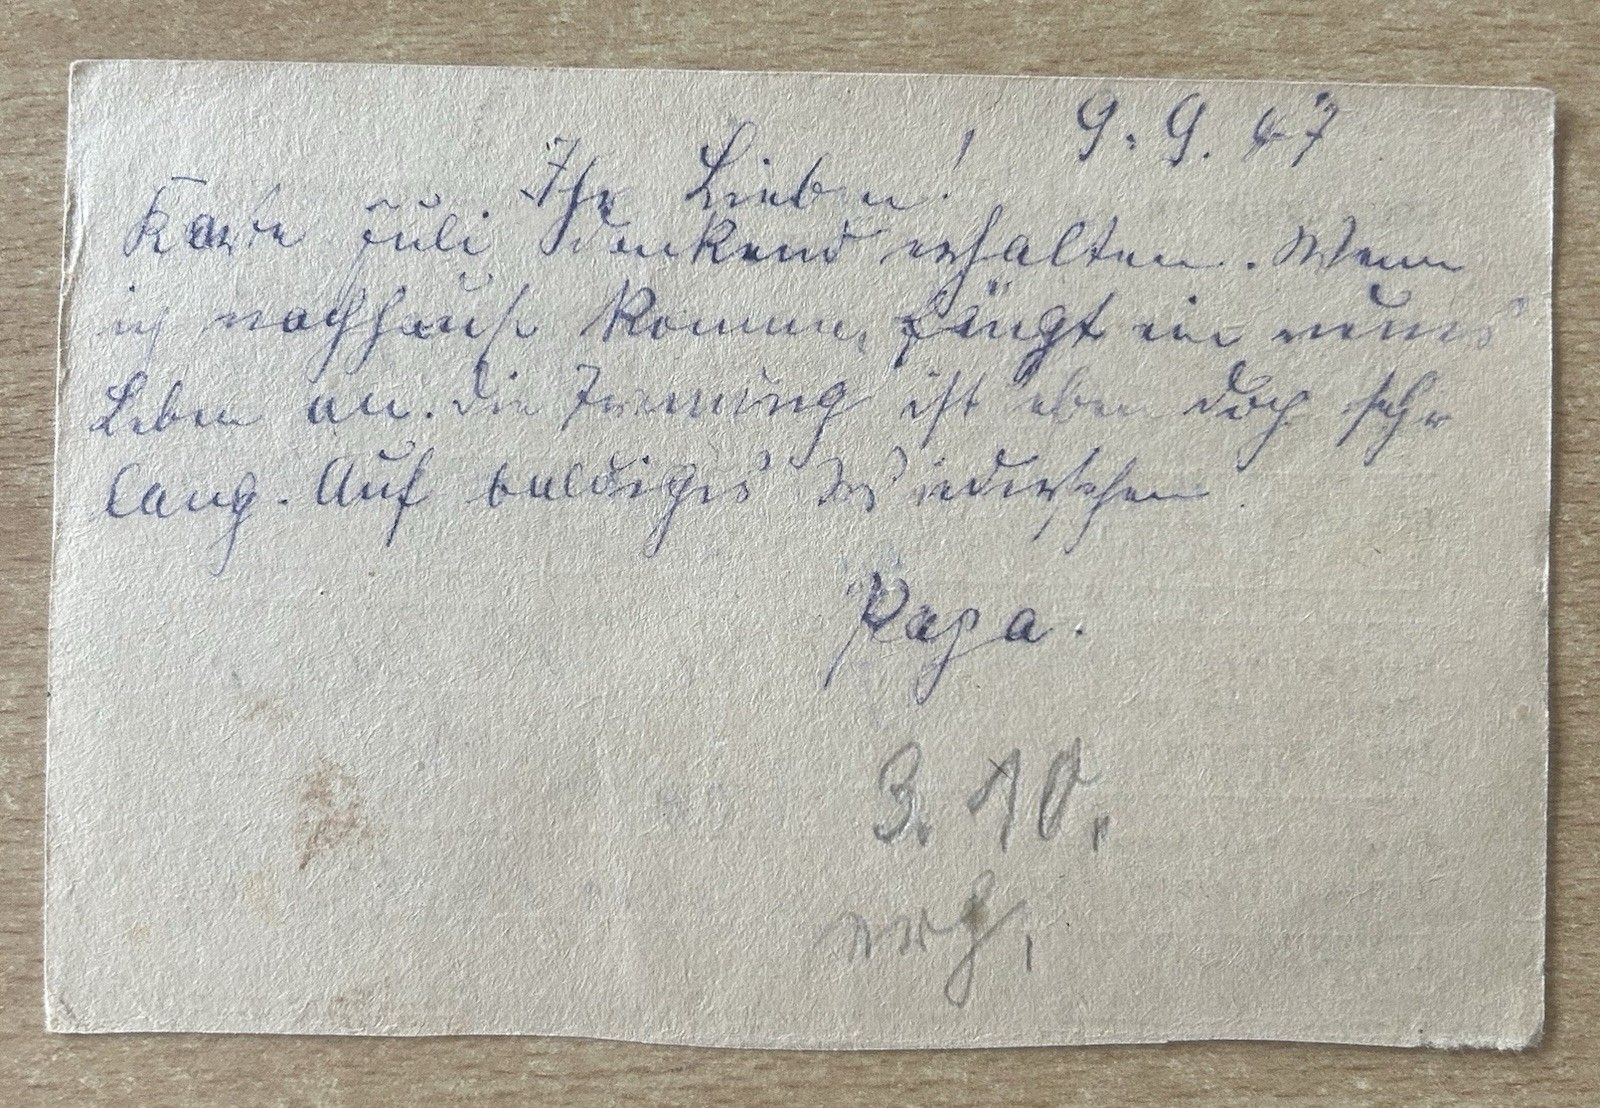 9.9.47
Ihr Lieben!
Karte Juli dankend erhalten. Wenn
ich nachhause komme, fängt ein neues
Leben an. Die Trennung ist eben doch sehr
lang. Auf baldiges Wiedersehen
Papa.
3. 10.